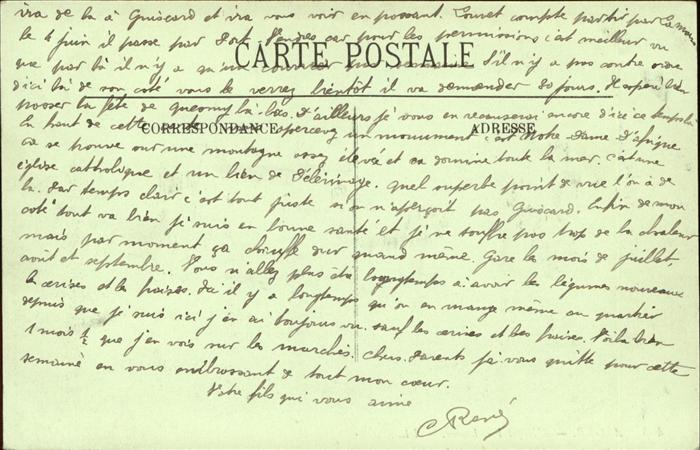 ira de là à Guiscard et ira vous voir en passant. Louvet compte partir par
le 4 juin il passe par Port Vendres car pour les permissions c'est meilleur vu
CARTE POSTALE
que par là il n'y a qu'un courrier par S'il n'y a pas contre ordre
d'ici là de son coté vous le verrez bientôt il va demander 30 jours. Il espère bien
passer la fête de là-bas. D'ailleurs je vous en recauserai encore d'ici ce temps là
CORRESPONDANCE
ADRESSE
En haut de cette apercevez un monument c'est Notre Dame d'Afrique
ça se trouve sur une montagne assez élevée et ça domine toute la mer. C'est une
église catholique et un lieu de Pélerinage. Quel superbe point de vue l'on a de
là. Par temps clair c'est tout juste si on n'aperçoit pas Guiscard. Enfin de mon
coté tout va bien je suis en bonne santé et je ne souffre pas trop de la chaleur
mais par moment ça chauffe dur quand même. Gare les mois de juillet,
août et septembre. Vous n'allez plus être longtemps à avoir les légumes nouveaux
les cerises et les fraises. Ici il y a longtemps qu'on en mange même au quartier
depuis que je suis ici j'en ai toujours vu sauf les cerises et les fraises. Voilà bien
1 mois ½ que j'en vois sur les marchés. Chers Parents je vous quitte pour cette
semaine en vous embrassant de tout mon cœur.
Votre fils qui vous aime
René